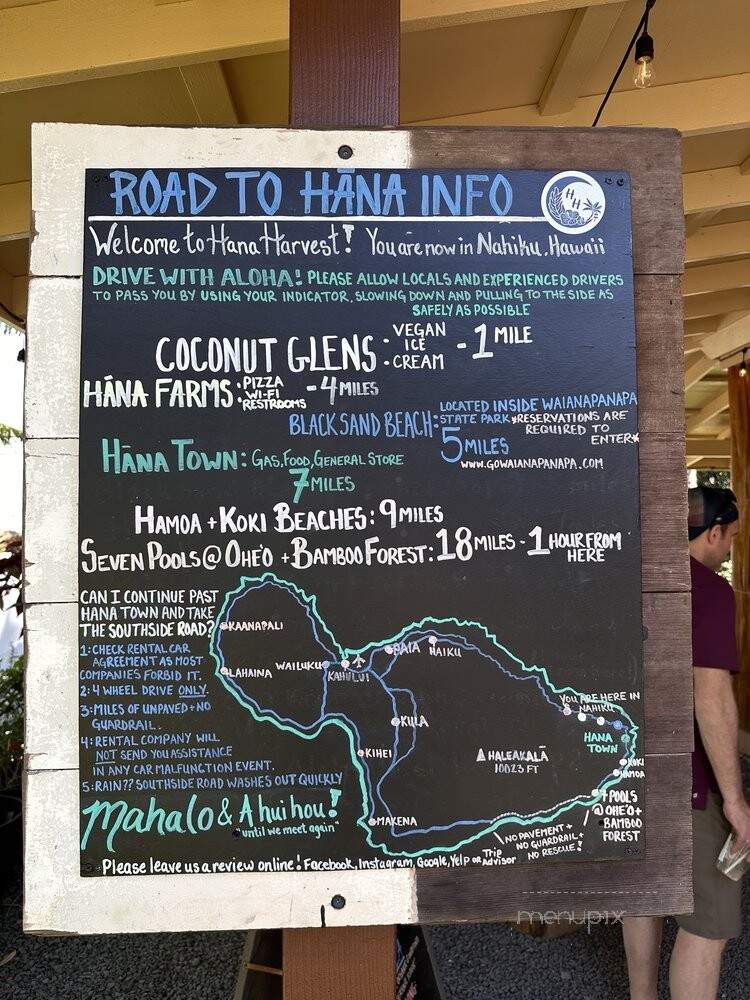 ROAD TO HĀNA INFO
HH
Welcome to Hana Harvest! You are now in Nahiku, Hawaii
DRIVE WITH ALOHA! PLEASE ALLOW LOCALS AND EXPERIENCED DRIVERS
TO PASS YOU BY USING YOUR INDICATOR, SLOWING DOWN AND PULLING TO THE SIDE AS
SAFELY AS POSSIBLE
COCONUT GLENS: VEGAN ICE CREAM - 1 MILE
HĀNA FARMS: PIZZA WI-FI RESTROOMS - 4 MILES
BLACK SAND BEACH: LOCATED INSIDE WAIANAPANAPA
STATE PARK *RESERVATIONS ARE
REQUIRED TO
ENTER*
5 MILES
WWW.GOWAIANAPANAPA.COM
HĀNA TOWN: GAS, FOOD, GENERAL STORE
7 MILES
HAMOA + KOKI BEACHES: 9 MILES
SEVEN POOLS @ OHE'O + BAMBOO FOREST: 18 MILES - 1 HOUR FROM
HERE
CAN I CONTINUE PAST
HANA TOWN AND TAKE
THE SOUTHSIDE ROAD?
1: CHECK RENTAL CAR
AGREEMENT AS MOST
COMPANIES FORBID IT.
2: 4 WHEEL DRIVE ONLY.
3: MILES OF UNPAVED + NO
GUARDRAIL.
4: RENTAL COMPANY WILL
NOT SEND YOU ASSISTANCE
IN ANY CAR MALFUNCTION EVENT.
5: RAIN?? SOUTHSIDE ROAD WASHES OUT QUICKLY
KAANAPALI
LAHAINA
WAILUKU
KAHULUI
PAIA
HAIKU
KULA
KIHEI
MAKENA
HALEAKALĀ
10023 FT
YOU ARE HERE IN
NAHIKU
HANA
TOWN
KOKI
HAMOA
7 POOLS
@ OHE'O +
BAMBOO
FOREST
NO PAVEMENT +
NO GUARDRAIL +
NO RESCUE!
Mahalo & A hui hou!
"until we meet again"
Please leave us a review online! Facebook, Instagram, Google, Yelp or Trip Advisor
menupix